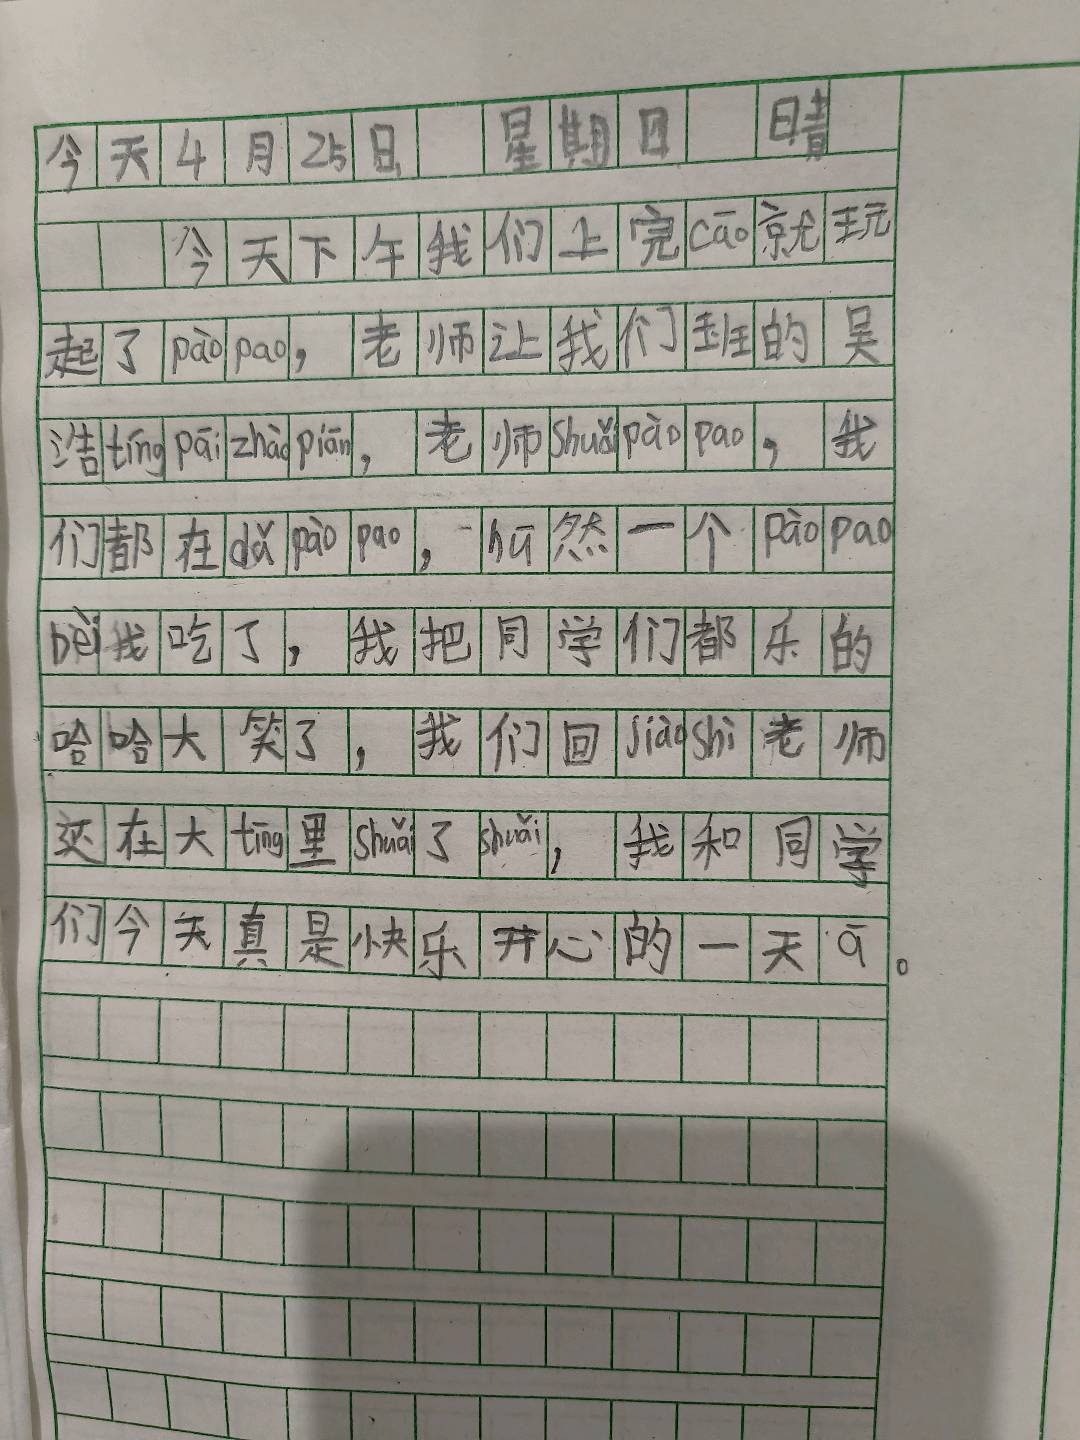 今天4月25日 星期日 晴
今天下午我们上完cāo就玩
起了pàopao，老师让我们班的吴
浩tíngpāizhàopiān，老师shuǎipàopao，我
们都在dǎpàopao，hū然一个pàopao
bèi我吃了，我把同学们都乐的
哈哈大笑了，我们回jiàoshì老师
又在大tīng里shuǎi了shuǎi，我和同学
们今天真是快乐开心的一天ā。